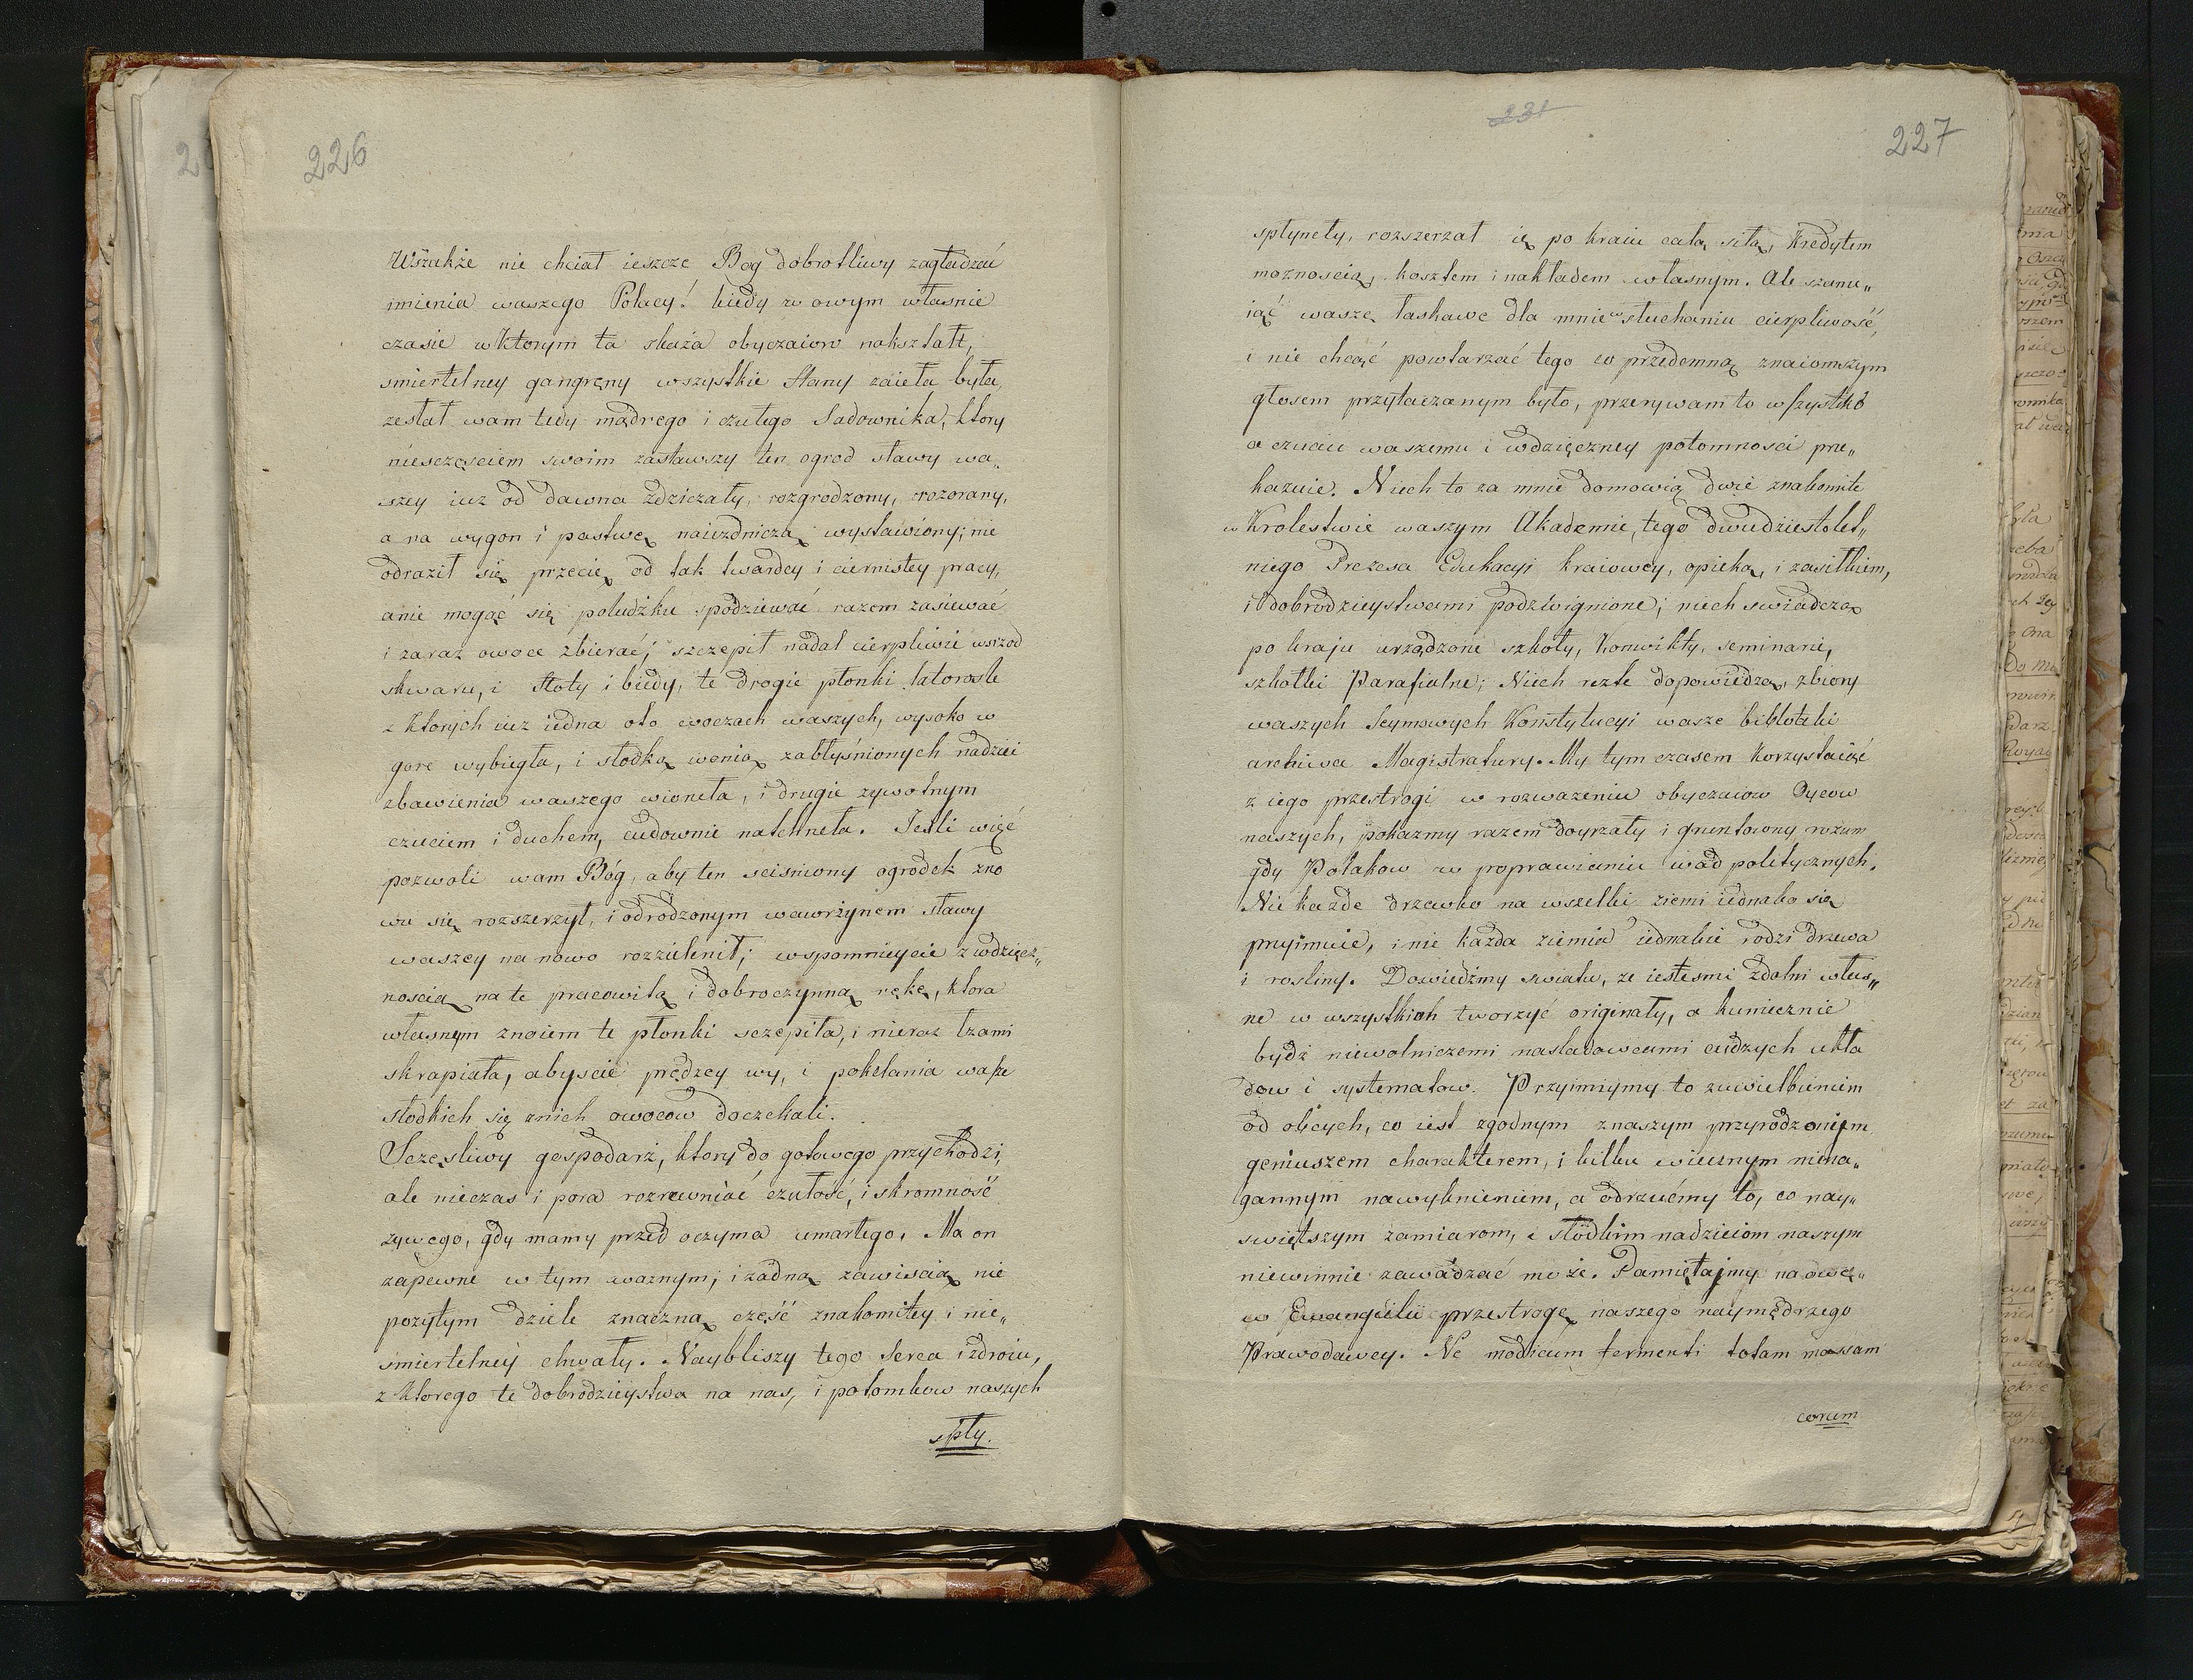 226
Wszakże nie chciał ieszcze Bog dobrotliwy zagładzać
imienia waszego Polacy! kiedy w owym własnie
czasie w ktorym ta skaza obyczaiow nakształt,
smiertelney gangręny wszystkie stany zaieła była,
zesłał wam tedy mądrego i czułego Sadownika, ktory
niesczęsciem swoim zastawszy ten ogrod sławy wa„
szey iuz od dawna zdziczały, rozgrodzony, rozorany,
a na wygon i pastwę naiezdniczą wystawiony; nie
odraził się przecię od tak twardey i ciernistey pracy,
anie mogąc się poludzku spodziewać razem zasiewać
i zaraz owoce zbierać; szczepił nadal cierpliwie wsrzod
skwaru, i słoty i biedy, te drogie płonki latorosle
z ktorych iuz iedna oto w oczach waszych, wysoko w
gore wybiegła, i słodką wonią zabłyśnionych nadziei
zbawienia waszego wioneła, i drugie zywotnym
czuciem i duchem, cudownie natchneła. Jesli więc
pozwoli wam Bóg, aby ten scisniony ogrodek zno
wu się rozszerzył, i odrodzonym wawrzynem sławy
waszey na nowo rozzielenił; wspomnieycie z wdzięcz„
noscią na te pracowitą i dobroczynną rękę, ktora
własnym znoiem te płonki sczepiła, i nieraz łzami
skrapiała, abyscie prędzey wy, i pokolania wasze
słodkich się znich owocow doczekali.
Sczęsliwy gospodarz, ktory do gotowego przychodzi,
ale nieczas i pora rozrownać czułość, i skromność
zywego, gdy mamy przed oczyma umarłego. Ma on
zapewne w tym waznym; i żadną zawiscią nie
pozytym dziele znaczną cześć znakomitey i nie„
smiertelney chwały. Naybliszy tego Serca i zdroiu,
z ktorego te dobrodzieystwa na nas, i potomkow naszych
spły.
231
227
spłyneły, rozszerzał ię po kraiu całą siłą, Kredytem
moznoscią, kosztem i nakładem własnym. Ale szanu„
iąć waszę łaskawe dla mnie w słuchaniu cierpliwość,
i nie chcąć powtarzać tego co przedemną znaiomszym
głosem przytaczanym było, przerywam to wszystko
a czuciu waszemu i wdzięczney potomnosci prze„
kazuie. Niech to za mnie domowią dwie znakomite
w Krolestwie waszym Akademie, tego dwudziestolet„
niego Prezesa Edukacyi kraiowey, opieką, i zasiłkiem,
i dobrodzieystwami podzwignione; niech swiadczą
po kraju urządzone szkoły, Konwikty, seminarie,
szkołki Parafialne; Niech reszte dopowiedzą, zbiory
waszych Seymowych Konstytucyi wasze biblotęki
archiwa Magistratury. My tym czasem Korzystaiąć
z iego przestrogi w rozwazeniu obyczaiow Oycow
naszych, pokazmy razem doyrzały i gruntowny rozum
gdy Polakow w poprawianiu wad politycznych.
Nie każde drzewko na wszelki ziemi iednako się
pryimuie, i nie każda ziemia iednakie rodzi drzewa
i rosliny. Dowiedźmy swiatu, ze iestesmi zdolni włas„
ne w wszystkich tworzyć originały, a kuniecznie
bydź niewolniczemi nasladowcami cudzych ukła
dow i systematow. Przyimiymy to zuwielbieniem
od obcych, co iest zgodnym znaszym przyrodzonym
geniuszem charakterem, i kilku wiecznym niena„
gannym nawyknieniem, a odrzućmy to, co nay„
swiętszym zamiarom, i słodkim nadzieiom naszym
niewinnie zawadzać może. Pamiętajmy na owę„
w Ewangielii przestrogę naszego naymędrzego
Prawodawcy. Ne modicum fermenti totam massam
corum